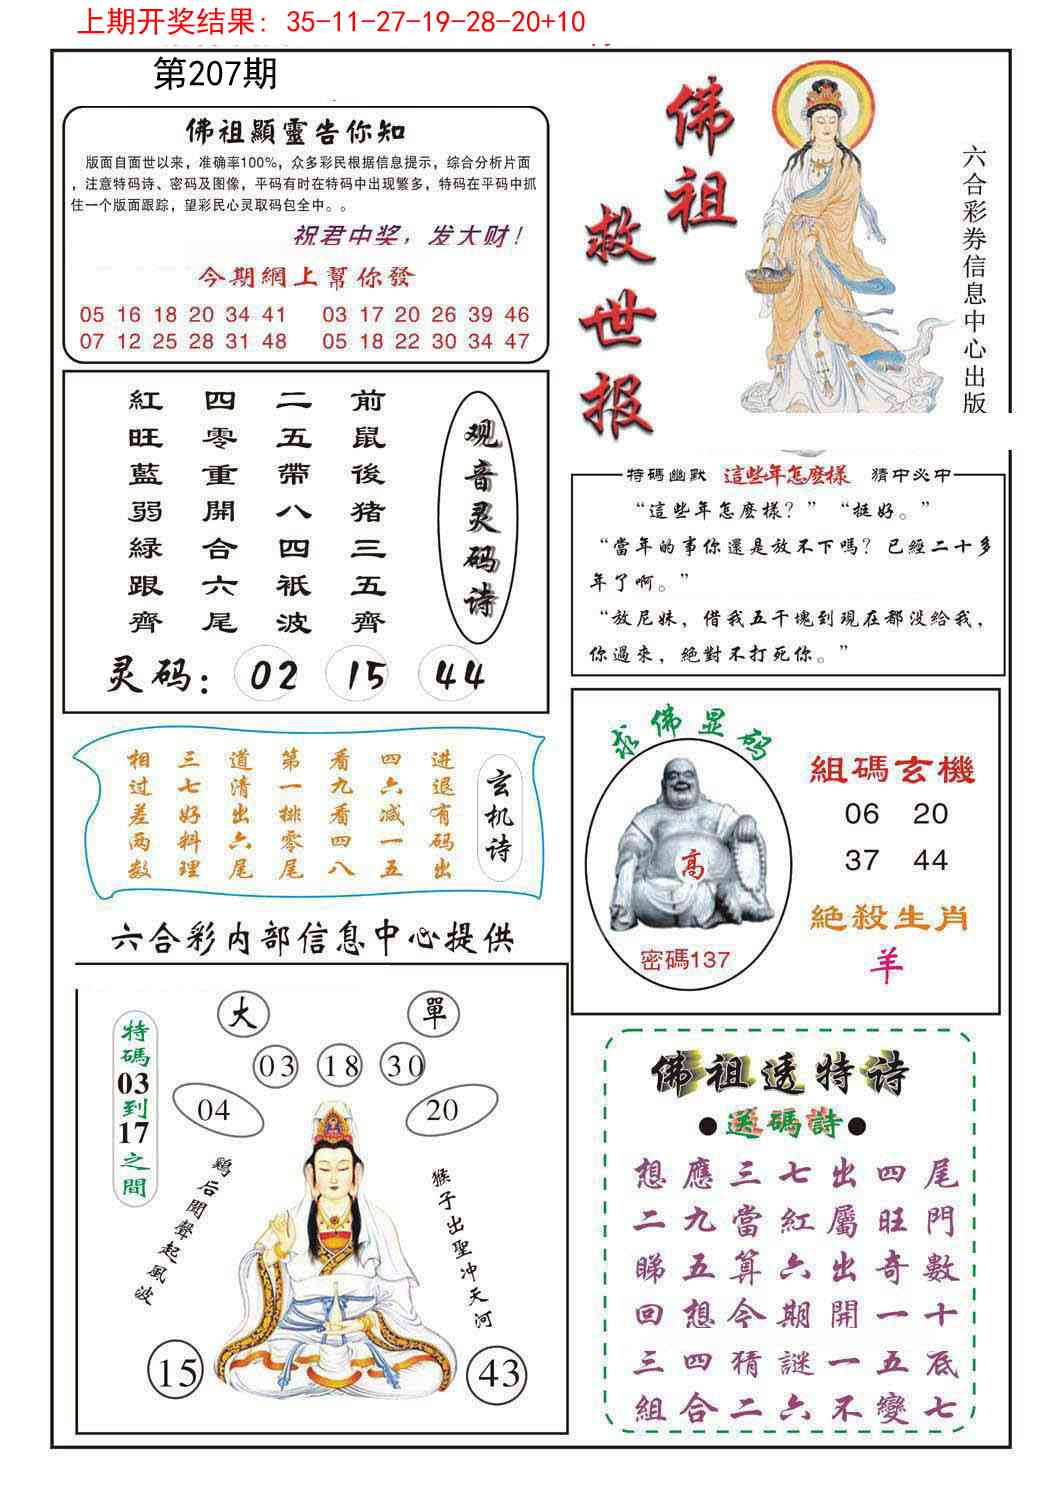 上期开奖结果：35-11-27-19-28-20+10
第207期
佛祖顯靈告你知
版面自面世以来，准确率100%，众多彩民根据信息提示，综合分析片面
，注意特码诗、密码及图像，平码有时在特码中出现繁多，特码在平码中抓
住一个版面跟踪，望彩民心灵取码包全中。。
祝君中奖，发大财！
今期網上幫你發
05 16 18 20 34 41 03 17 20 26 39 46
07 12 25 28 31 48 05 18 22 30 34 47
佛祖
救世报
六合彩券信息中心出版
观音灵码诗
前鼠後猪三五齊
二五帶八四祇波
四零重開合六尾
紅旺藍弱緑跟齊
灵码：02 15 44
特碼幽默 這些年怎麽樣 猜中必中
“這些年怎麽樣？”“挺好。”
“當年的事你還是放不下嗎？已經二十多
年了啊。”
“放尼妹，借我五千塊到現在都没給我，
你過來，絶對不打死你。”
玄机诗
进退有码出
四六减一五
看九看四八
第一排零尾
道清出六尾
三七好料理
相过差两数
求佛显码
高
密碼137
組碼玄機
06 20
37 44
絕殺生肖
羊
六合彩内部信息中心提供
大 單
03 18 30
04 20
特碼03到17之間
鷄后聞聲起風波
猴子出聖冲天河
15 43
佛祖透特诗
●送碼詩●
想應三七出四尾
二九當紅屬旺門
睇五算六出奇數
回想今期開一十
三四猜謎一五底
組合二六不變七